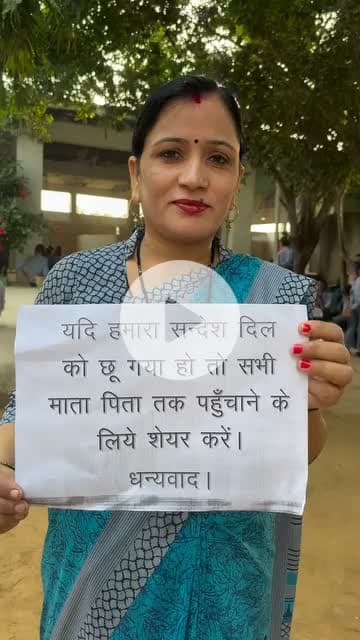 यदि हमारा सन्देश दिल
को छू गया हो तो सभी
माता पिता तक पहुँचाने के
लिये शेयर करें।
धन्यवाद।